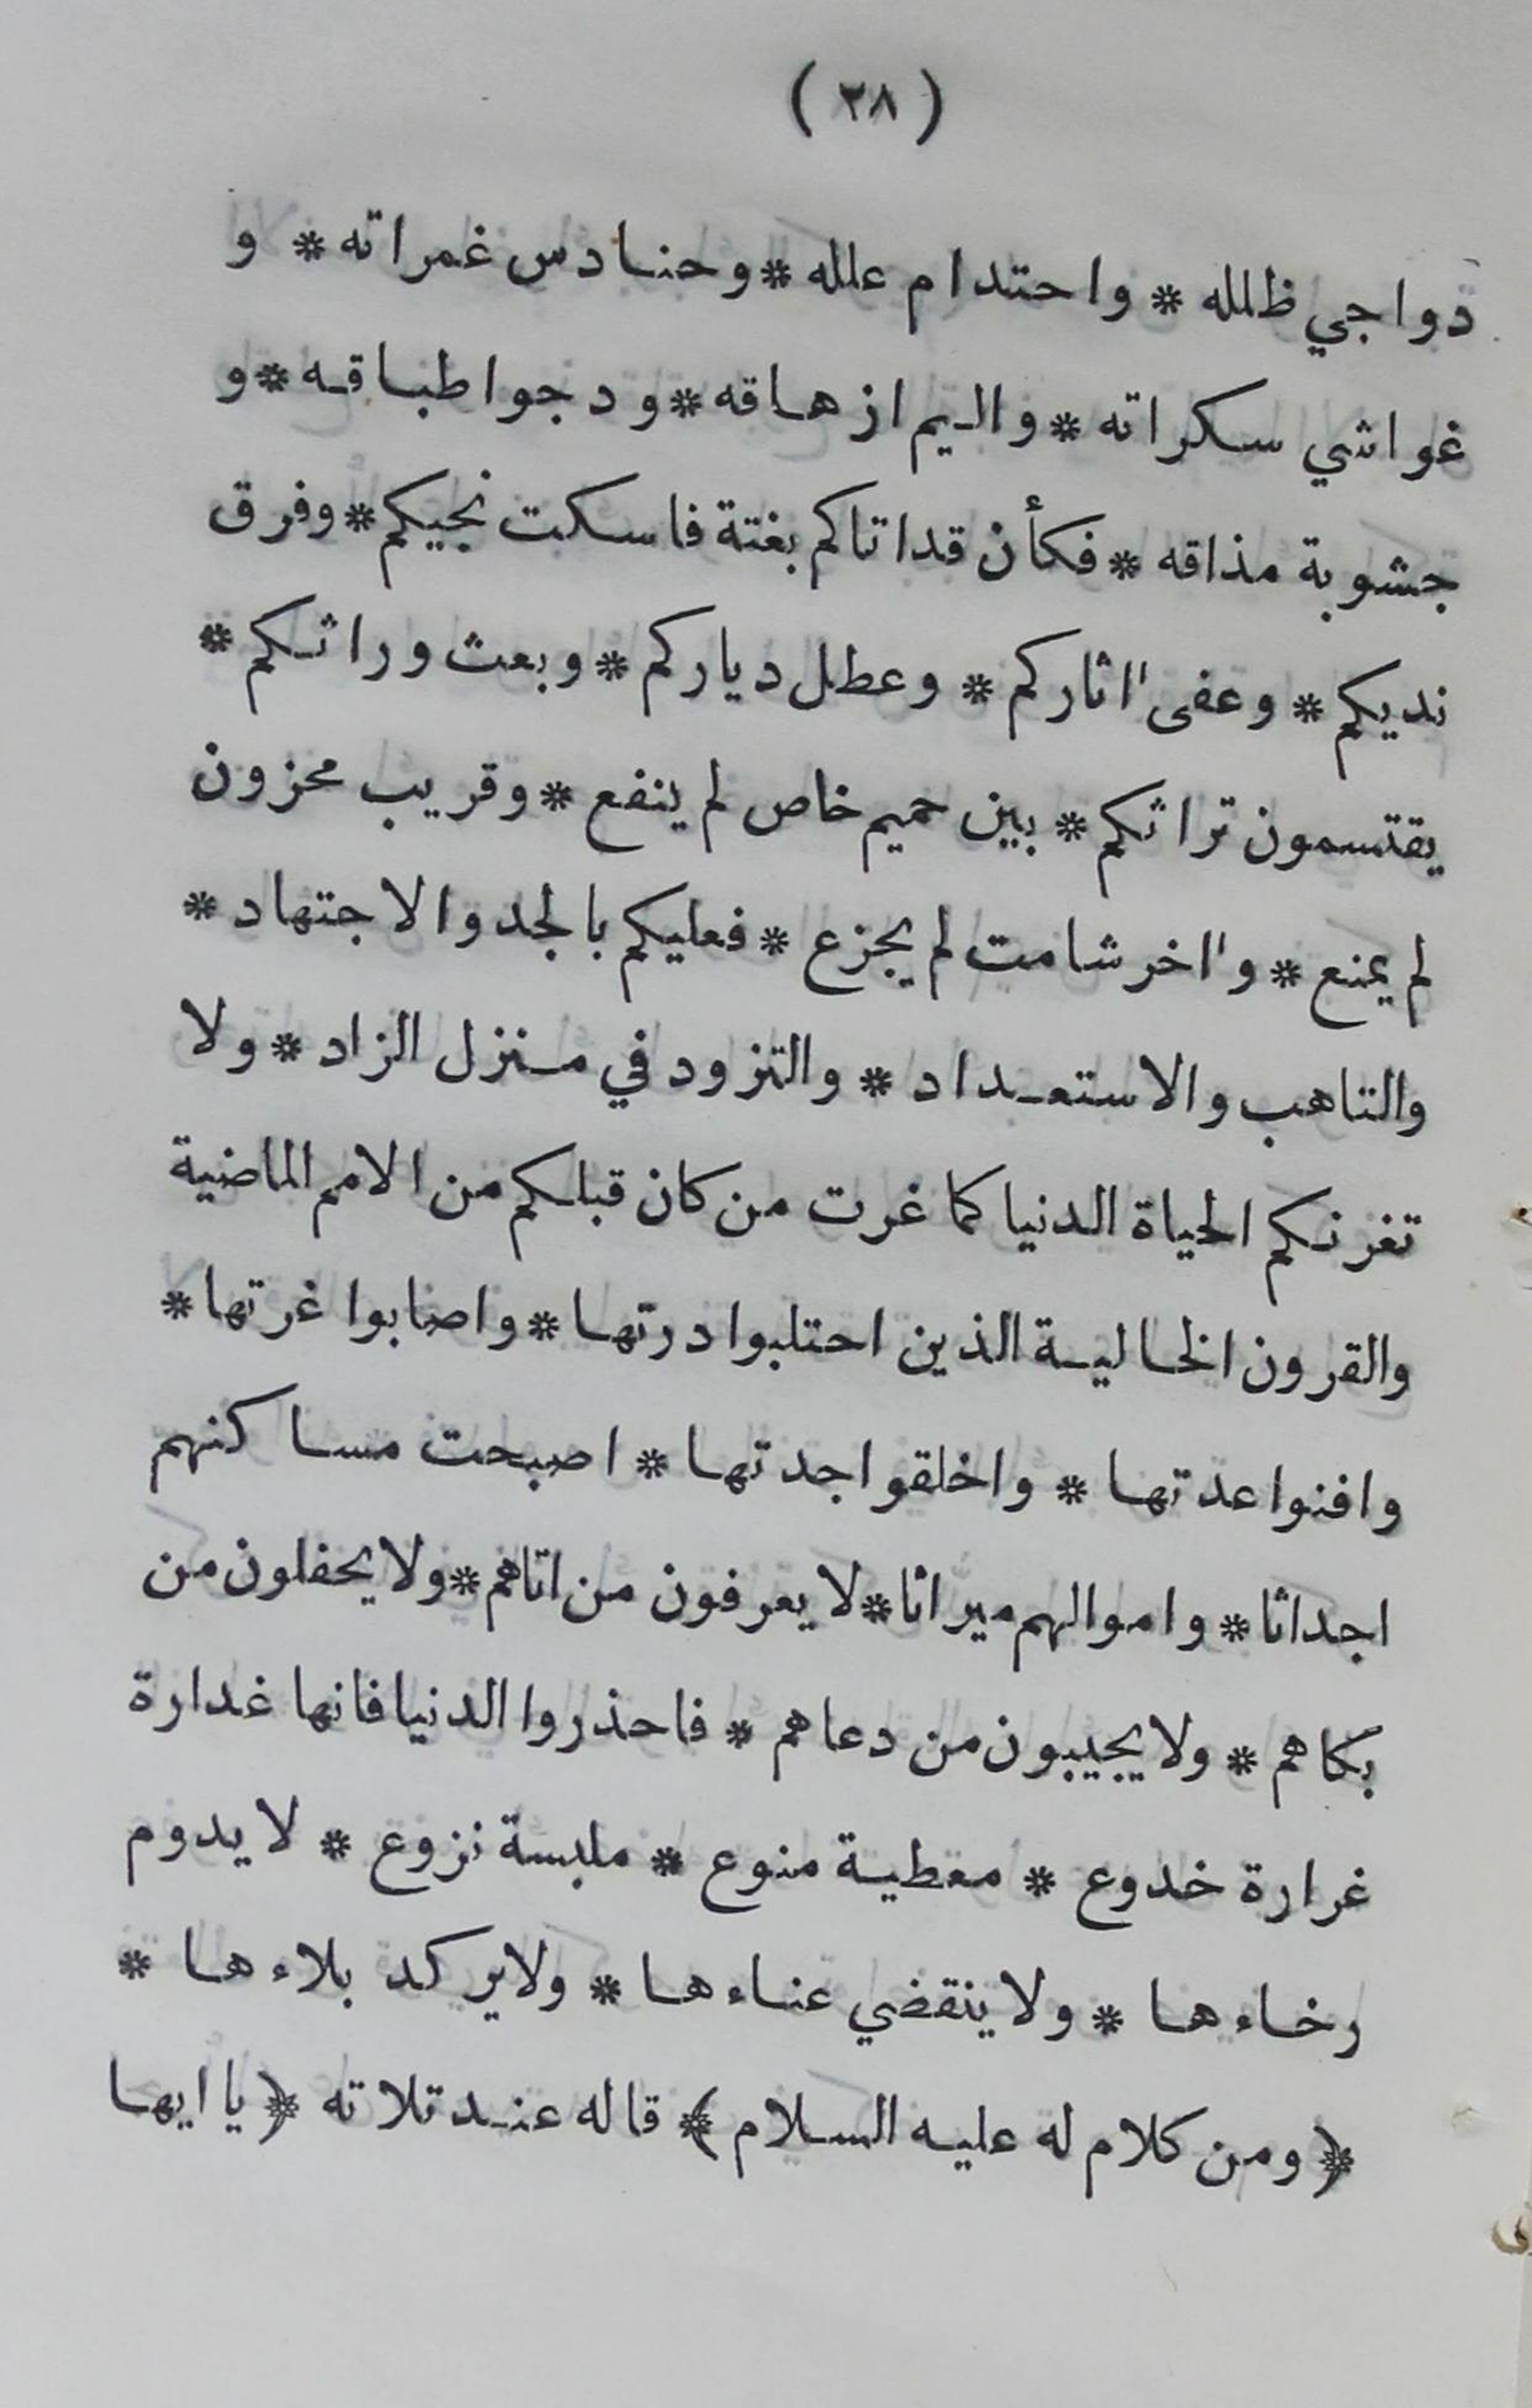 (٢٨)
دواجي ظلله * واحتدام علله * وحنادس غمراته * و
غواشي سكراته * واليم ازهاقه * ودجواطباقه * و
جشوبة مذاقه * فكأن قداتاكم بغتة فاسكت نجيكم * وفرق
نديكم * وعفى ااثاركم * وعطل دياركم * وبعث وراثكم *
يقتسمون تراثكم * بين حميم خاص لم ينفع * وقريب محزون
لم يمنع * وااخر شامت لم يجزع * فعليكم بالجد والاجتهاد *
والتاهب والاستعداد * والتزود في منزل الزاد * ولا
تغرنكم الحياة الدنيا كما غرت من كان قبلكم من الامم الماضية
والقرون الخالية الذين احتلبوا درتها * واصابوا غرتها *
وافنوا عدتها * واخلقوا جدتها * اصبحت مساكنهم
اجداثا * واموالهم ميراثا * لا يعرفون من اتاهم * ولا يحفلون من
بكاهم * ولا يجيبون من دعاهم * فاحذروا الدنيا فانها غدارة
غرارة خدوع * معطية منوع * ملبسة نزوع * لا يدوم
رخاءها * ولا ينقضي عناءها * ولا يركد بلاءها *
﴿ ومن كلام له عليه السلام ﴾ قاله عند تلاته ﴿ يا ايها